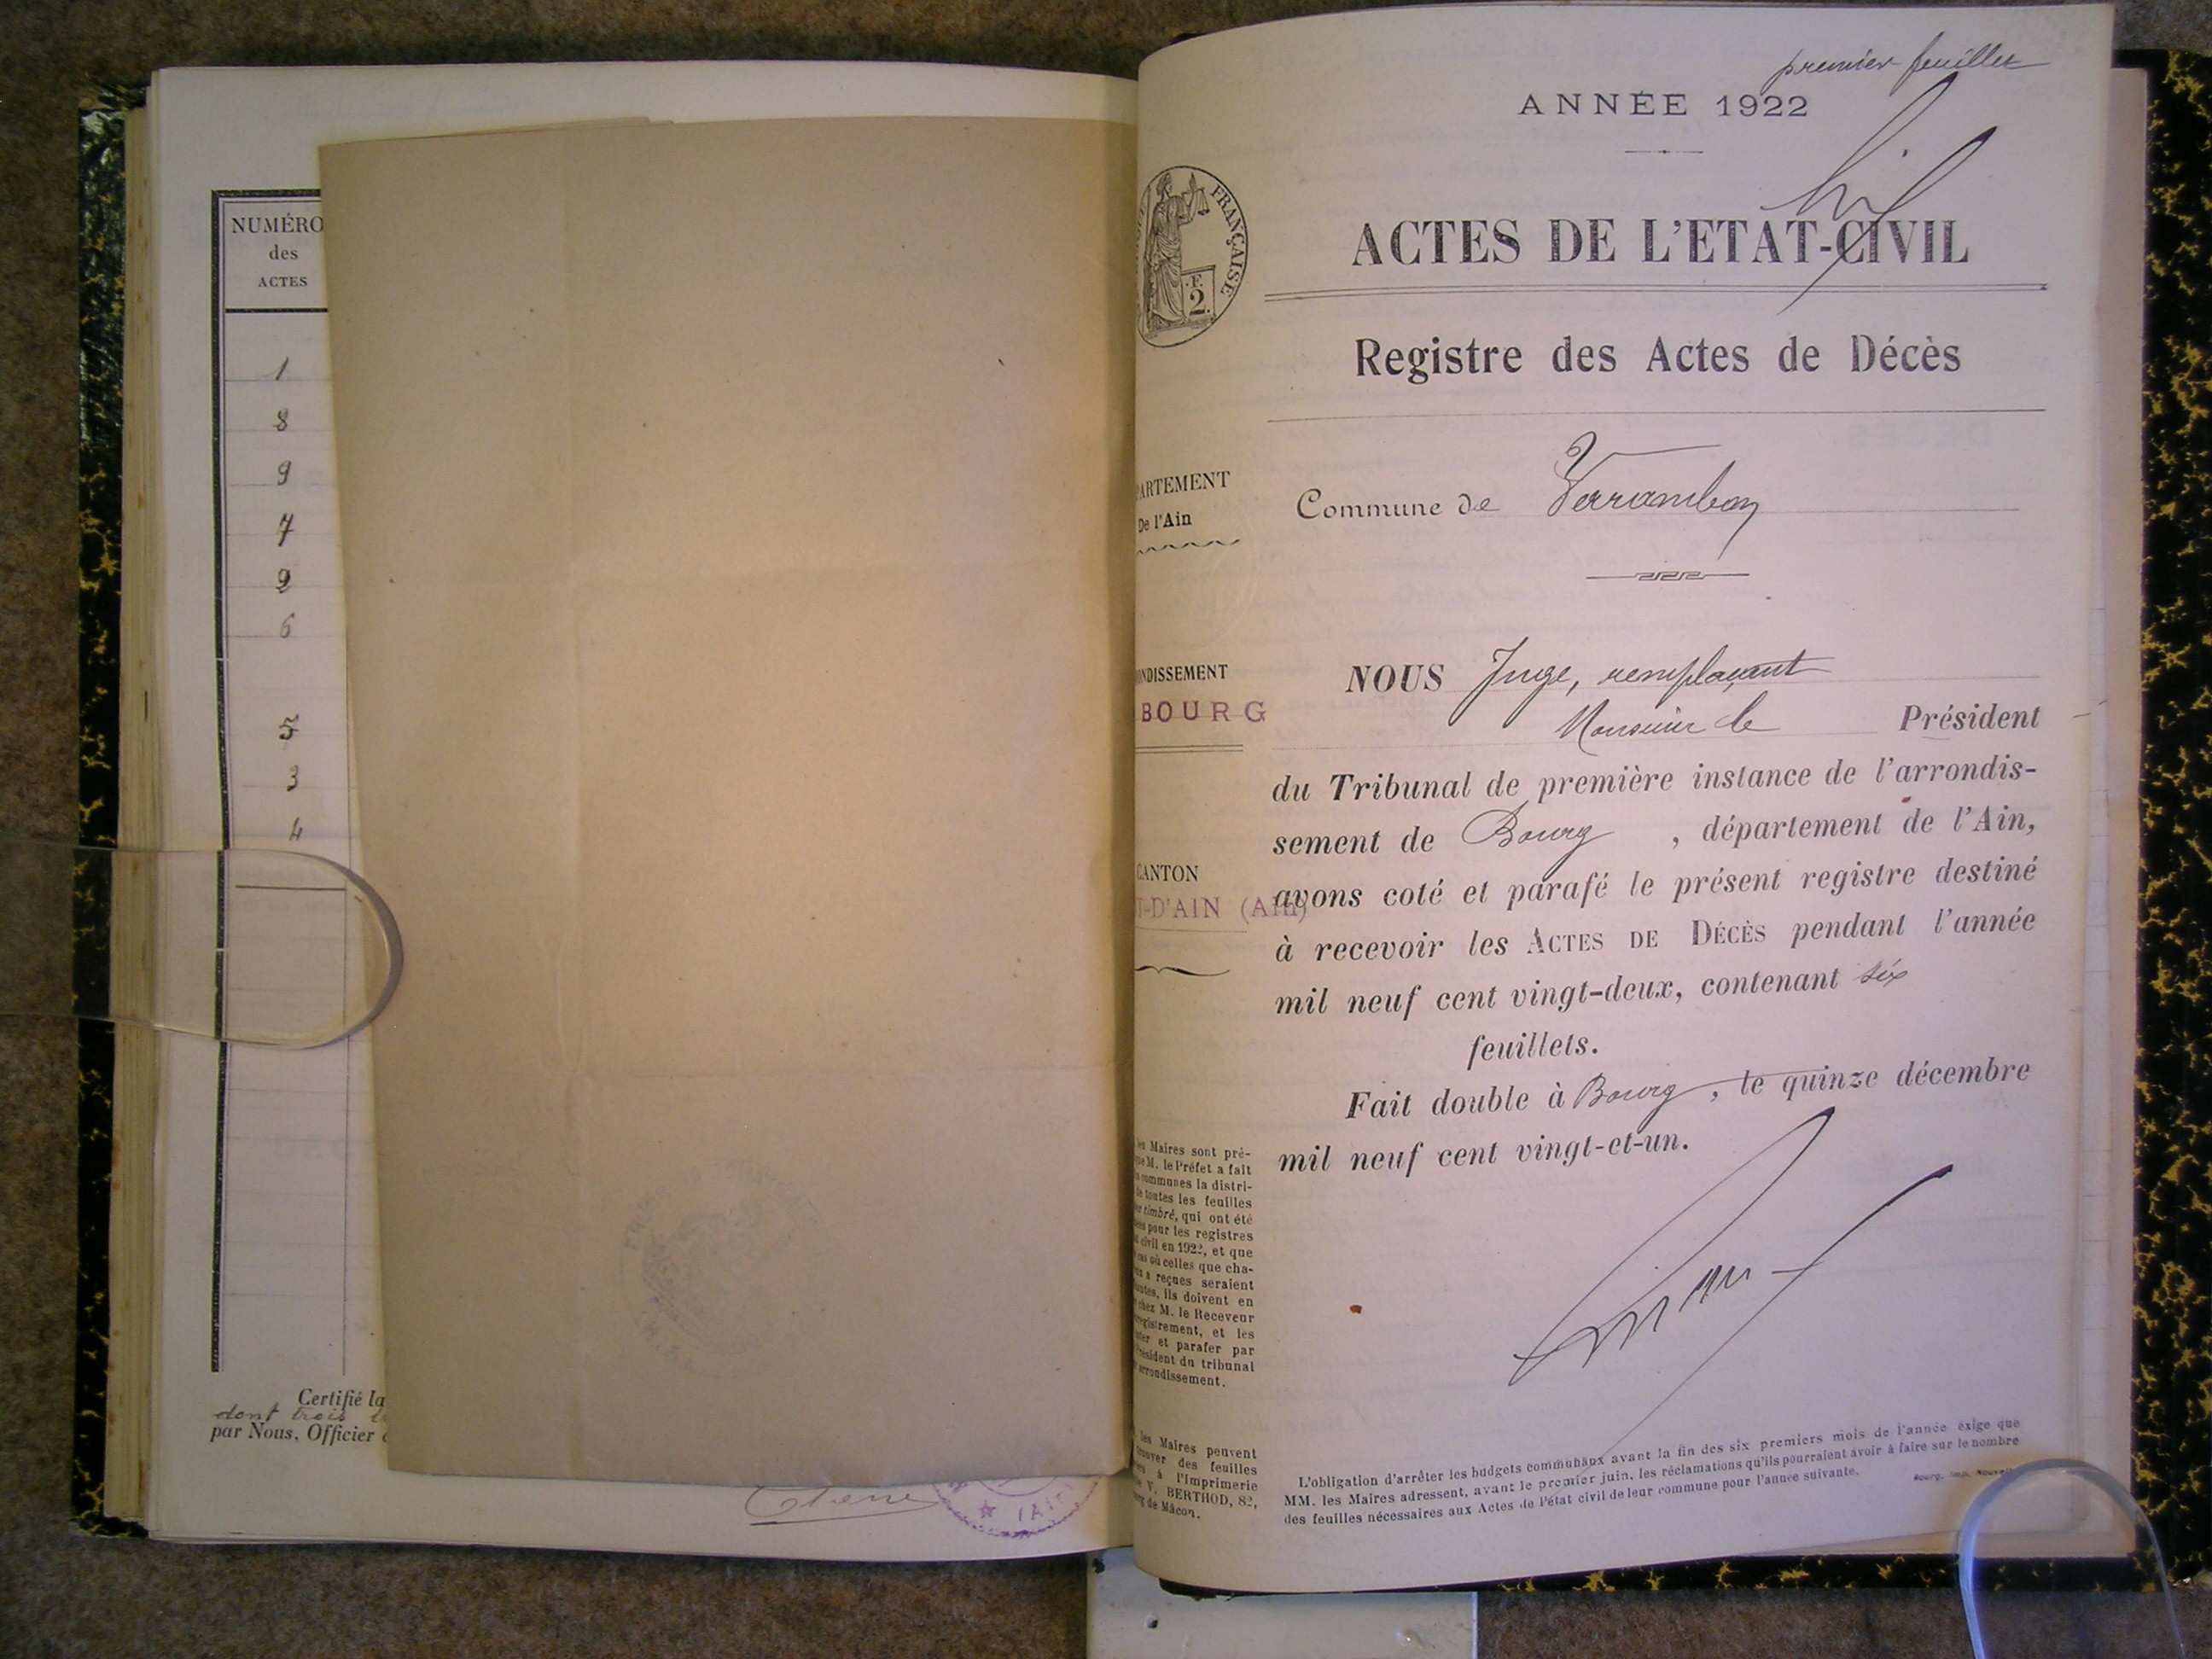 NUMÉRO
des
ACTES
1
8
9
7
2
6
5
3
4
Certifié la
dont trois
par Nous, Officier
premier feuillet
ANNÉE 1922
FRANÇAISE
F.
2.
ACTES DE L'ETAT-CIVIL
Registre des Actes de Décès
PARTEMENT
De l'Ain
Commune de Varambon
NDISSEMENT
BOURG
NOUS Juge, remplaçant
Monsieur le Président
du Tribunal de première instance de l'arrondis-
sement de Bourg, département de l'Ain,
CANTON
T-D'AIN (Ain)
avons coté et parafé le présent registre destiné
à recevoir les ACTES DE DÉCÈS pendant l'année
mil neuf cent vingt-deux, contenant six
feuillets.
Fait double à Bourg, le quinze décembre
mil neuf cent vingt-et-un.
les Maires sont pré-
que M. le Préfet a fait
communes la distri-
de toutes les feuilles
timbré, qui ont été
pour les registres
civil en 1922, et que
cas où celles que cha-
a reçues seraient
ils doivent en
chez M. le Receveur
et les
et parafer par
Président du tribunal
arrondissement.
les Maires peuvent
trouver des feuilles
à l'Imprimerie
V. BERTHOD, 82,
de Mâcon.
L'obligation d'arrêter les budgets communaux avant la fin des six premiers mois de l'année exige que
MM. les Maires adressent, avant le premier juin, les réclamations qu'ils pourraient avoir à faire sur le nombre
des feuilles nécessaires aux Actes de l'état civil de leur commune pour l'année suivante.
Bourg, Imp. Nouvelle